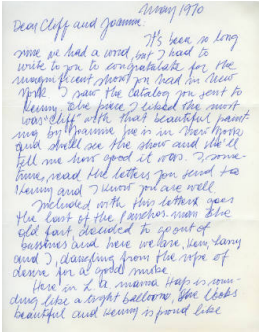 May 1970
Dear Cliff and Joanna:
It's been so long
since we had a word, but I had to
write to you to congratulate for the
magnificent show you had in New
York. I saw the catalog you sent to
Kenny. The piece I liked the most
was "Cliff" with that beautiful paint
ing by Joanna. Joe is in New York
and shall see the show and he'll
tell me how good it was. I, some-
time, read the letters you send to
Kenny and I know you are well.
Included with this letter goes
the last of the
old fart, decided to go out of
bussines and here we are, Ken, Larry
and I, dangling from the rope of
desire for a good smoke.
Here in L.A. mama Hap is roun-
ding like a bright balloon, she looks
beautiful and Kenny is proud like